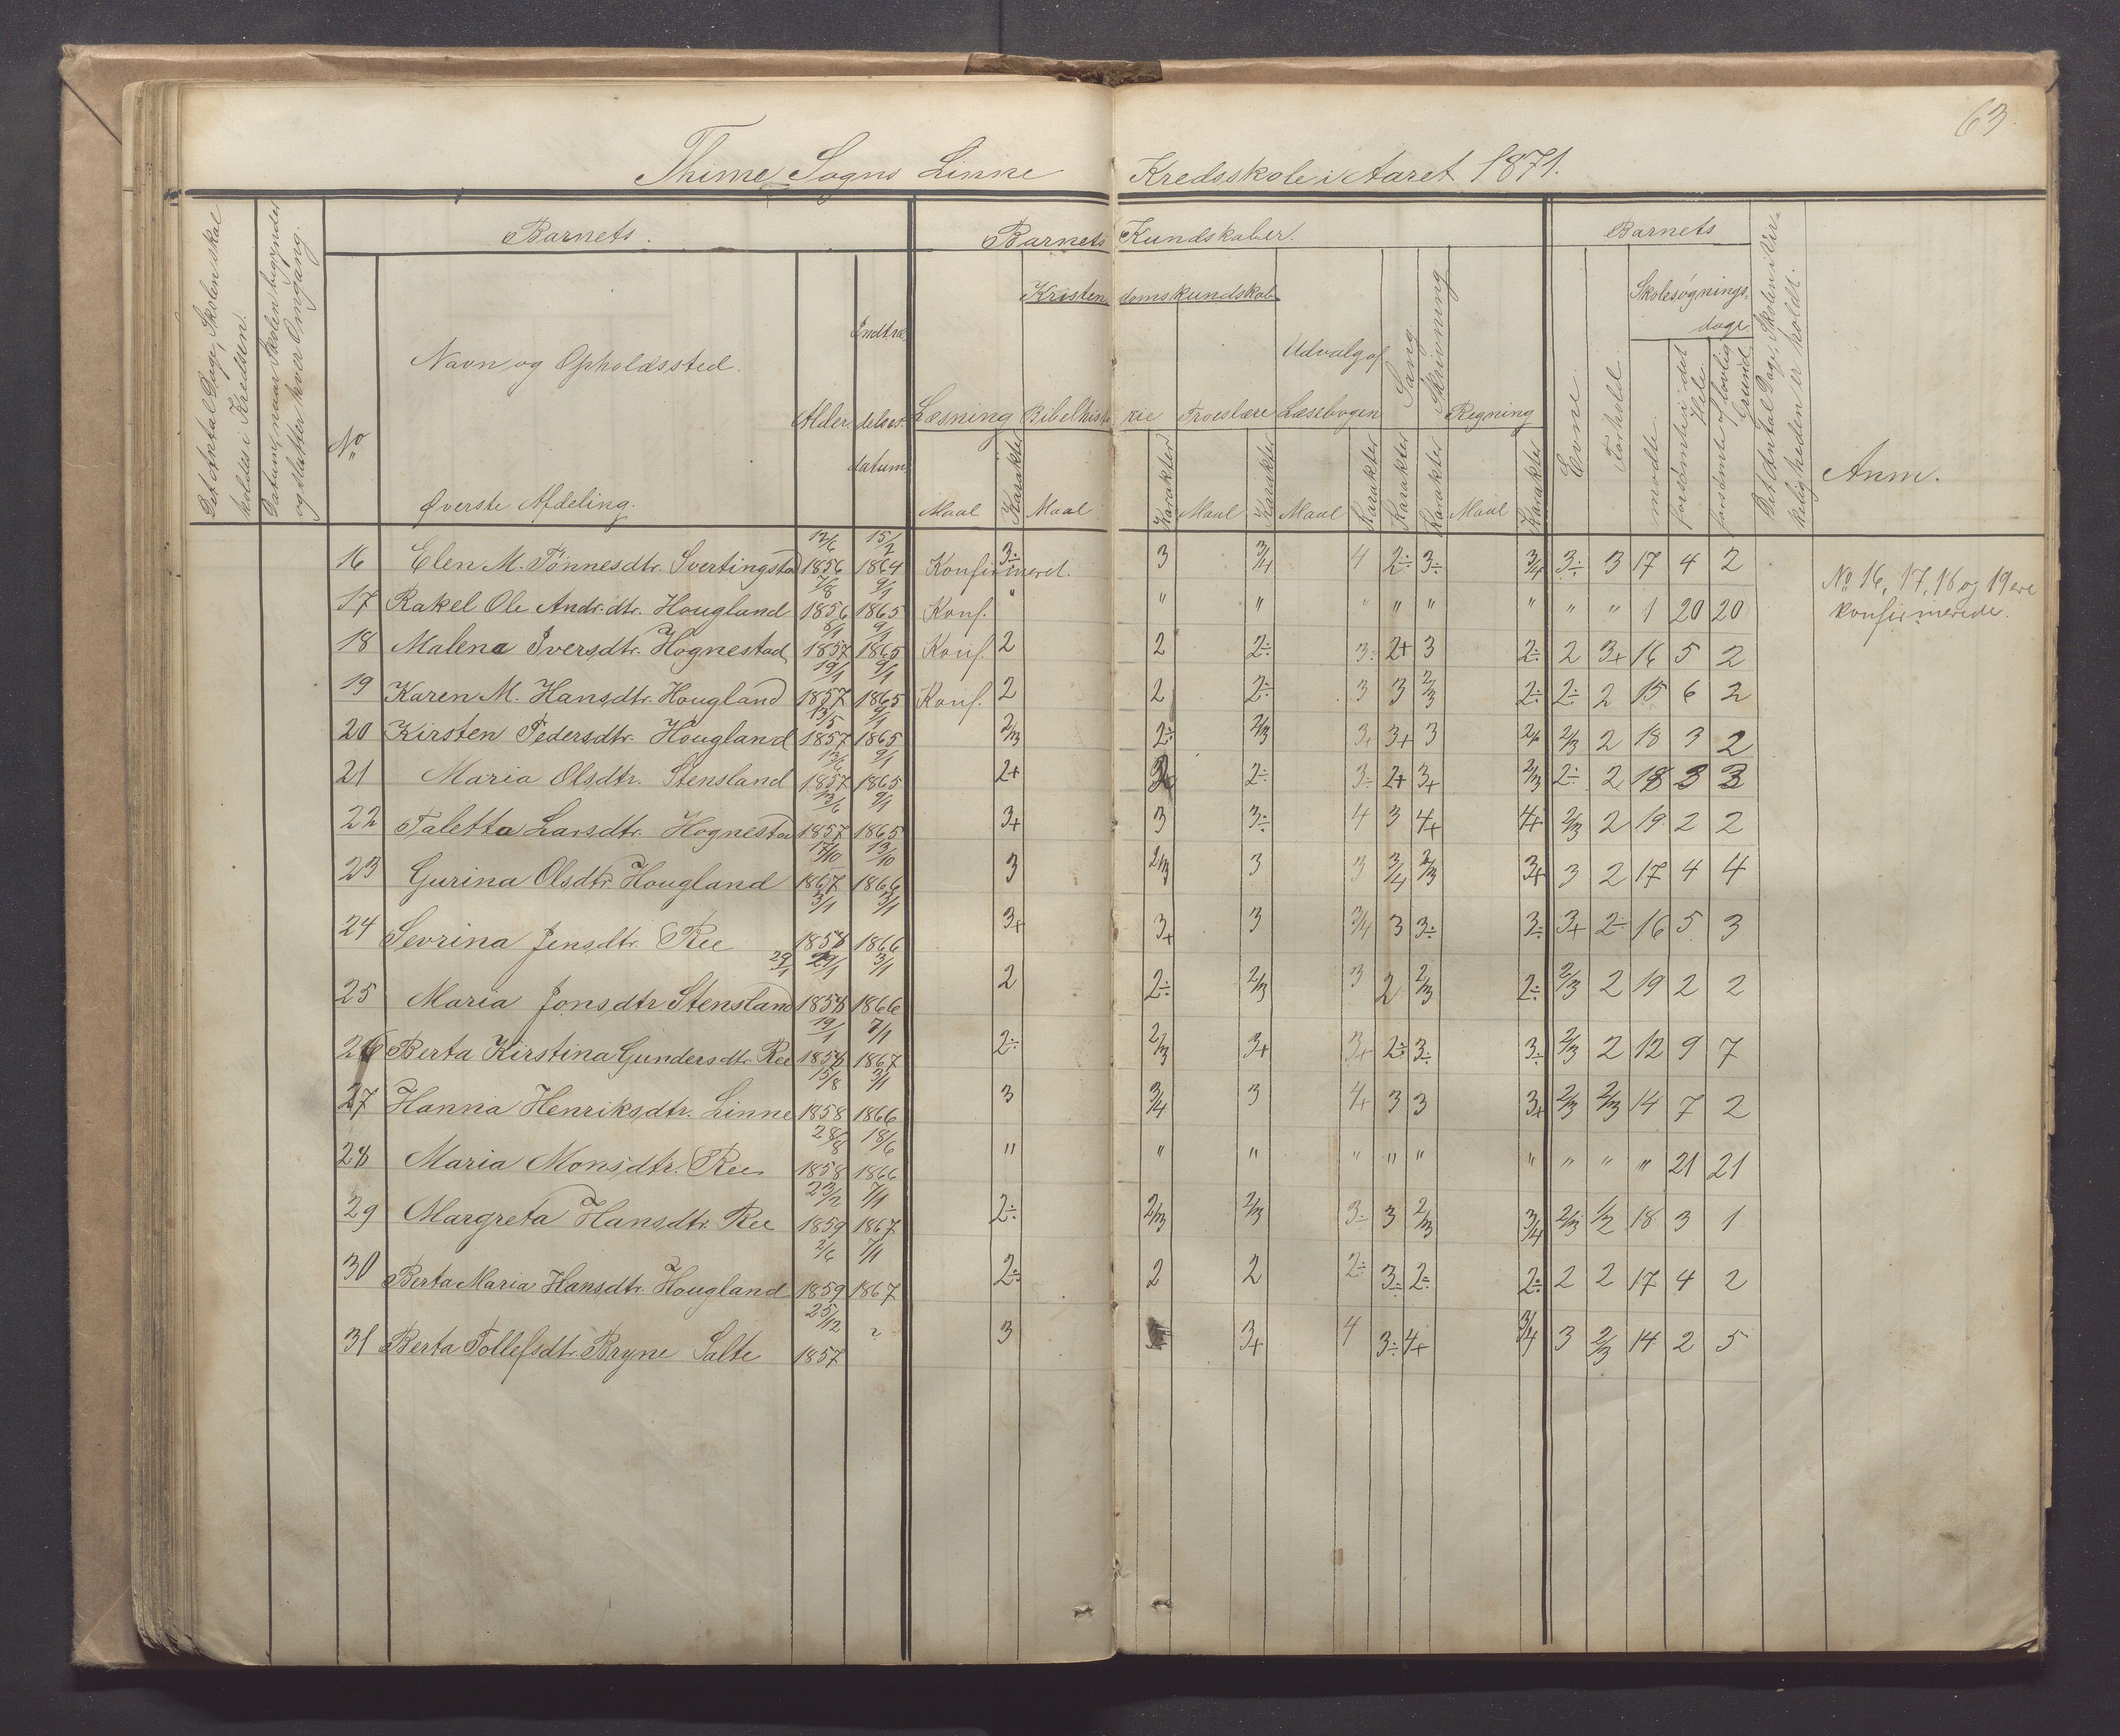 63.
Thime Sogns Linne Kredsskole i Aaret 1871.
Det Antal Dage, Skolen skal holdes i Kredsen.
Datum, naar Skolen begynder og slutter hver Omgang.
Barnets.
Barnets Kundskaber.
Barnets
No
Navn og Opholdssted.
Øverste Afdeling.
Alder.
Indtrædelsesdatum.
Læsning
Kristendomskundskab
Bibelhistorie
Troeslære
Udvalg af Læsebogen
Sang
Skrivning
Regning
Maal Karakter Maal Karakter Maal Karakter Maal Karakter Karakter Karakter Maal Karakter
Evne.
Forhold.
Skolesøgningsdage.
mødte.
forsømte i det Hele.
forsømte af lovlig Grund.
Det Antal Dage, Skolen i Virkeligheden er holdt.
Anm.
16 Elen M. Tönnesdtr. Svertingstad 12/6 1856 15/2 1864 Konfirmeret. 3÷ 3 3/4 4 2÷ 3÷ 3/4 3÷ 3 17 4 2
No 16, 17, 18 og 19 ere
konfirmerede.
17 Rakel Ole Andr.dtr. Hougland 7/8 1856 9/1 1865 Konf. " " " " " " " " " 1 20 20
18 Malena Iversdtr. Hognestad 8/1 1857 9/1 1865 Konf. 2 2 2÷ 3÷ 2+ 3 2÷ 2 3+ 16 5 2
19 Karen M. Hansdtr. Hougland 19/1 1857 9/1 1865 Konf. 2 2 2÷ 3 3 2/3 2÷ 2÷ 2 15 6 2
20 Kirsten Pedersdtr. Hougland 13/5 1857 9/1 1865 2/3 2÷ 2/3 3+ 3+ 3 2+ 2/3 2 18 3 2
21 Maria Olsdtr. Stensland 13/6 1857 9/1 1865 2+ 2÷ 3÷ 2+ 3+ 2/3 2÷ 2 18 3 3
22 Taletta Larsdtr. Hognestad 13/6 1857 9/1 1865 3+ 3 3÷ 4 3 4+ 4+ 2/3 2 19 2 2
23 Gurina Olsdtr. Hougland 17/10 1867 13/10 1866 3 2/3 3 3 3/4 2/3 3+ 3 2 17 4 4
24 Sevrina Jensdtr. Ree 3/1 1858 3/1 1866 3+ 3+ 3 3/4 3 3÷ 3÷ 3+ 2÷ 16 5 3
25 Maria Jonsdtr. Stensland 29/1 29/1 1858 3/1 1866 2 2÷ 2/3 3 2 2/3 2÷ 2/3 2 19 2 2
26 Berta Kirstina Gundersdtr. Ree 19/1 1858 7/1 1867 2÷ 2/3 3+ 3+ 2÷ 3÷ 3÷ 2/3 2 12 9 7
27 Hanna Henriksdtr. Linne 15/8 1858 3/1 1866 3 3/4 3 4+ 3 3 3+ 2/3 2/3 14 7 2
28 Maria Monsdtr. Ree 28/8 1858 18/6 1866 " " " " " " " " " " 21 21
29 Margreta Hansdtr. Ree 23/2 1859 7/1 1867 2÷ 2/3 2/3 3÷ 3 2/3 3/4 2/3 1/2 18 3 1
30 Berta Maria Hansdtr. Hougland 2/6 1859 7/1 1867 2÷ 2 2 2÷ 3÷ 2÷ 2÷ 2 2 17 4 2
31 Berta Tollefsdtr. Bryne Salte 25/12 1857 ? 3 3+ 4 3÷ 4+ 3/4 3 2/3 14 2 5